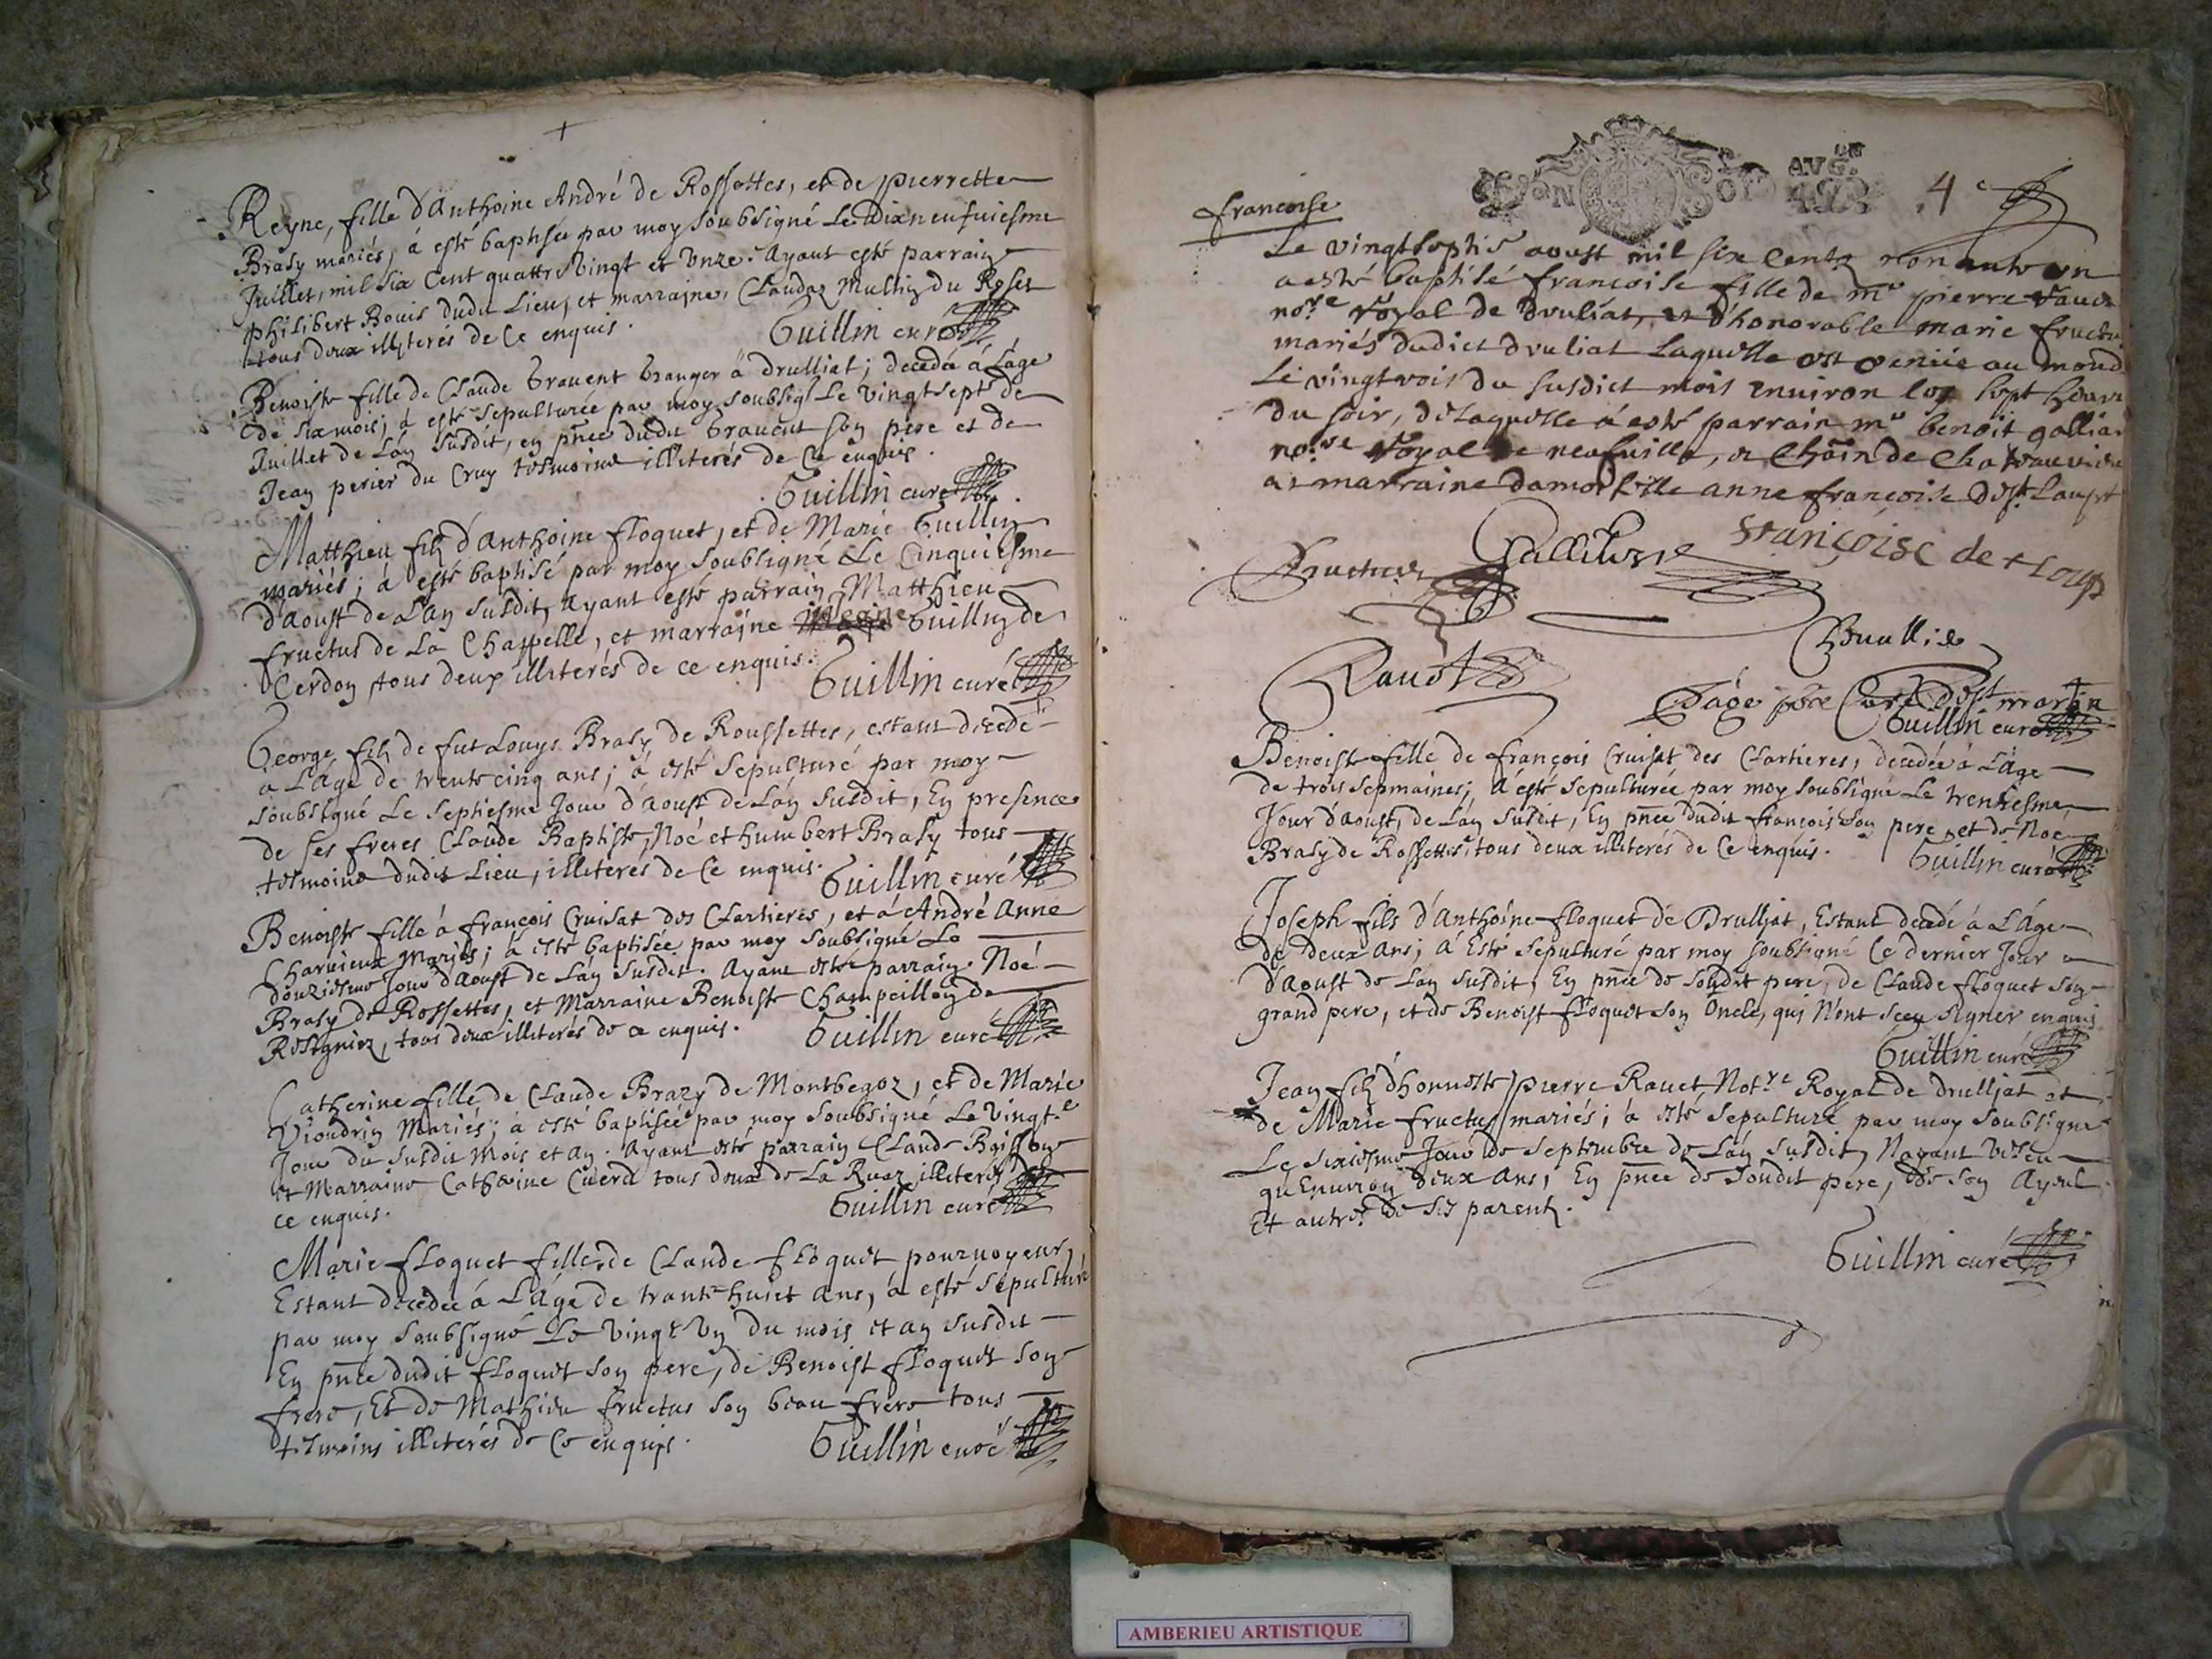 Reyne, fille d'Anthoine André de Rossettes, et de pierrette
Brasy mariés, à esté baptisée par moy soubsigné Le dixneufuiesme
Juillet, mil six Cent quattre Vingt et Unze. Ayant esté parrain
philibert Bouis dudit Lieu, et marraine, Claudaz du Roset
tous deux illiterés de Ce enquis.
Guillin curé
Benoiste fille de Claude Grauent Granger à drulliat; decedée à L'âge
de six mois; à esté sepulturée par moy soubsig Le vingt sept de
Juillet de L'an susdit, en pnce dudit Grauent son pere et de
Jean perier du Cruy tesmoins illiterés de Ce enquis.
Guillin curé
Matthieu filz d'Anthoine floquet, et de Marie Guillin
mariés; à esté baptisé par moy soubsigné Le Cinquiesme
d'aoust de L'an susdit, ayant esté parrain Matthieu
fructus de La Chappelle, et marraine Guillin de
Cerdon tous deux illiterés de ce enquis.
Guillin curé
George filz de fut Louys Brasy de Roussettes, estant decedé
à L'âge de trente cinq ans; à esté sepulturé par moy
soubsigné Le septiesme Jour d'aoust de L'an susdit, En presence
de ses freres Claude Baptiste, Noé et humbert Brasy tous
tesmoins dudit Lieu, illiterés de Ce enquis.
Guillin curé
Benoiste fille à françois Cruisat des Clartieres, et à André Anne
Charuieux Mariés; à esté baptisée par moy soubsigné Le
douziesme Jour d'Aoust de L'an susdit. Ayant esté parrain Noé
Brasy de Rossettes, et Marraine Benoiste Champeillon de
Resigniez, tous deux illiterés de ce enquis.
Guillin curé
Catherine fille de Claude Brazy de Montbegoz, et de Marie
Vioudrin Mariés; à esté baptisée par moy soubsigné Le Vingt.e
Jour du susdit Mois et an. Ayant esté parrain Claude Boisson
et Marraine Catherine tous deux de La Ruaz illiterés de
ce enquis.
Guillin curé
Marie floquet fille de Claude floquet pouruoyeur,
Estant decedée à L'âge de trante huict ans, à esté sepulturée
par moy soubsigné Le Vingt Un du mois et an susdit
En pnce dudit floquet son pere, de Benoist floquet son
frere, Et de Mathieu fructus son beau frere tous
tesmoins illiterés de Ce enquis.
Guillin curé
AVG.on
4e
francoise
Le vingt septi.e aoust mil six Cents nonante un
a esté baptisé francoise fille de m.e pierre Rauet
no.re Royal de druliat, et d'honorable marie fructus
mariés dudict druliat Laquelle est venüe au monde
Le vingt trois du susdict mois enuiron les sept heures
du soir, de Laquelle à esté parrain m.e benoit
no.re Royal de neufuille, et
et marraine damoiselle anne francoise de st. Loup
françoise de st Loup
Rauet
curé de st martin
Guillin curé
Benoiste fille de françois Cruisat des Clartieres, decedée à L'âge
de trois sepmaines; à esté sepulturée par moy soubsigné Le trentiesme
Jour d'aoust, de L'an susdit, En pnce dudit françois son pere, et de Noé
Brasy de Rossettes, tous deux illiterés de Ce enquis.
Guillin curé
Joseph fils d'Anthoine floquet de Drulliat, Estant decedé à L'âge
de deux ans; à Esté sepulturé par moy soubsigné Ce dernier Jour
d'aoust de L'an susdit, En pnce de sondit pere, de Claude floquet son
grand pere, et de Benoist floquet son Oncle, qui N'ont sceu signer enquis
Guillin curé
Jean filz d'honneste pierre Rauet Not.re Royal de drulliat et
de Marie fructus mariés; à esté sepulturé par moy soubsigné
Le sixiesme Jour de septembre de L'an susdit, N'ayant Vescu
qu'Enuiron deux ans, En pnce de sondit pere, de son Ayeul
Et autres de ses parentz.
Guillin curé
AMBERIEU ARTISTIQUE